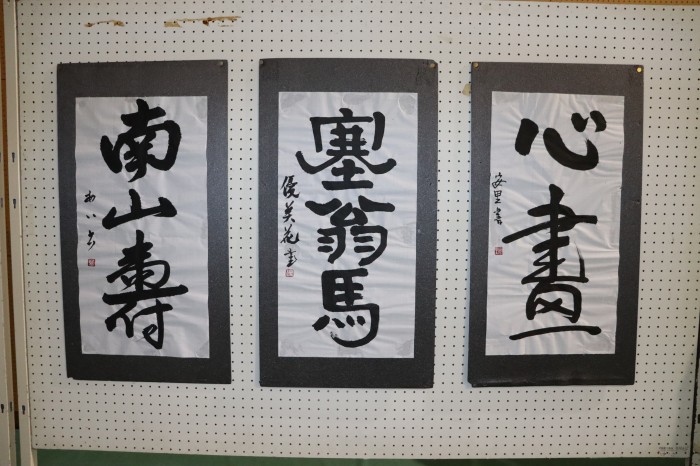 南山壽
塞翁馬
優美花書
心畫
安里書